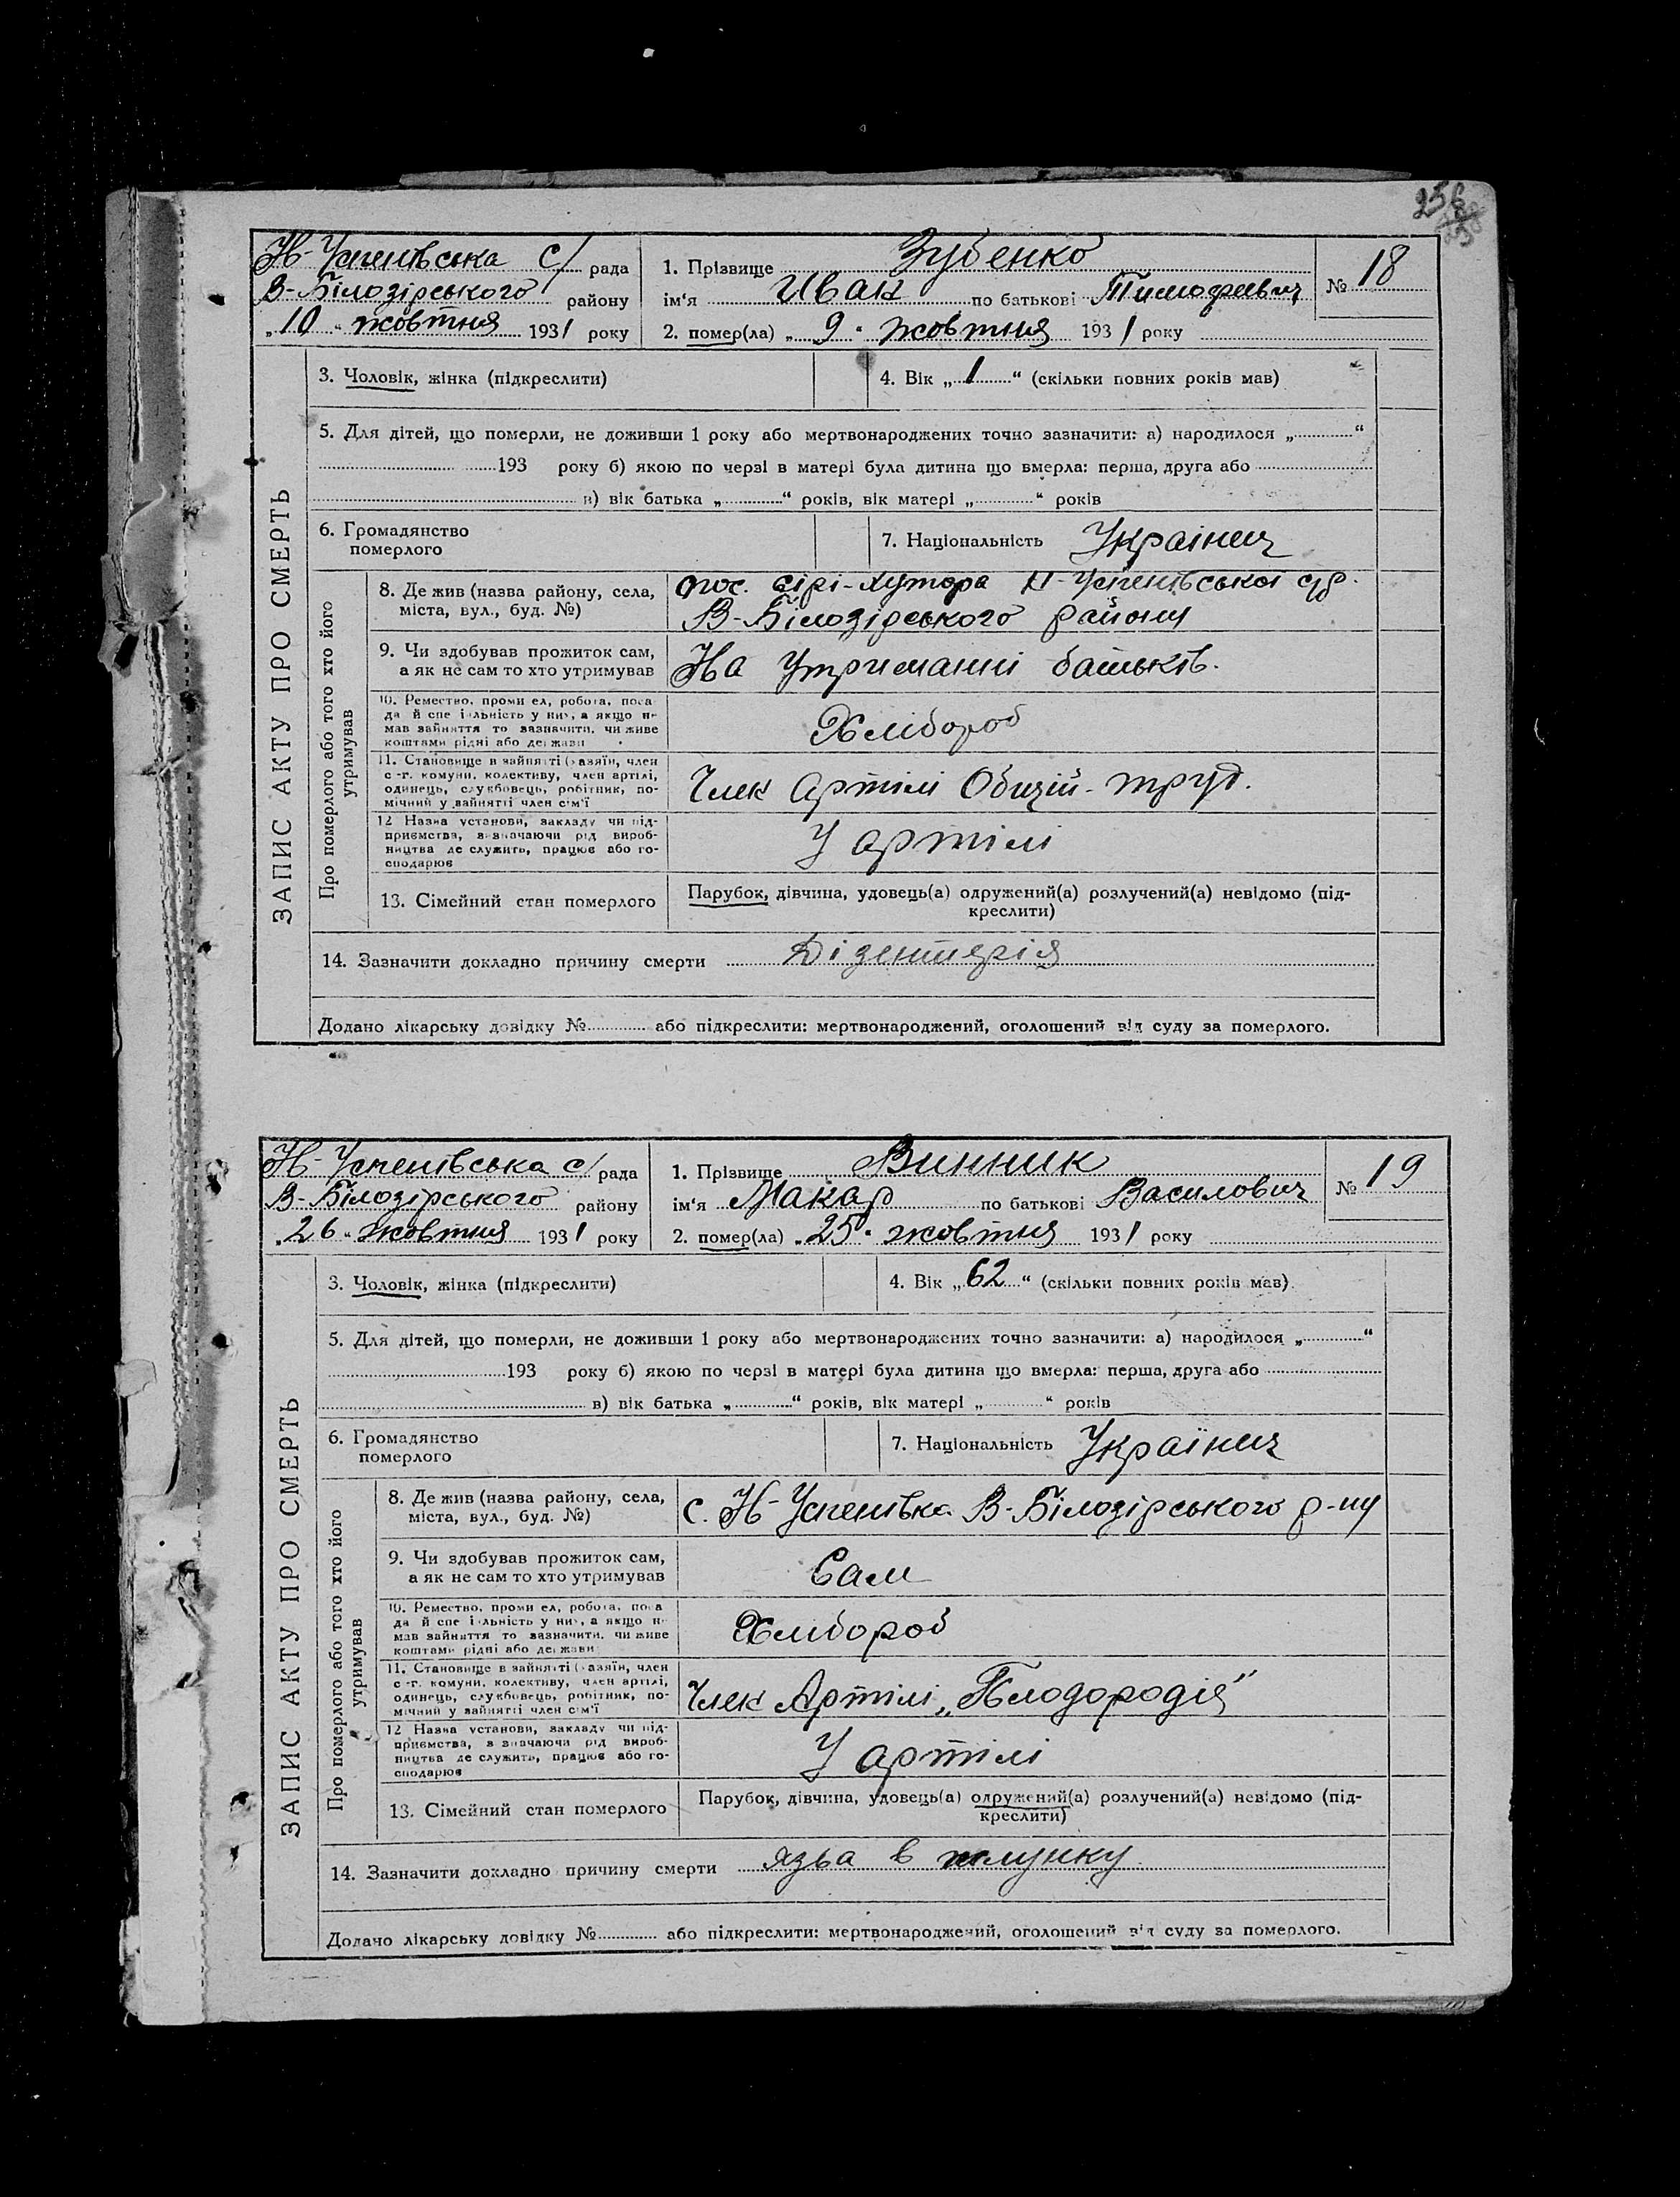 256
Н-Успенівська с/ рада
В-Білозірського району
„10“ жовтня 1931 року
1. Прізвище Зубенко
ім‘я Иван по батькові Тимофеевич
2. помер(ла) „9“ жовтня 1931 року
№ 18
ЗАПИС АКТУ ПРО СМЕРТЬ
3. Чоловік, жінка (підкреслити)
4. Вік „1“ (скільки повних років мав)
5. Для дітей, що померли, не доживши 1 року або мертвонароджених точно зазначити: а) народилося „ “
193 року б) якою по черзі в матері була дитина що вмерла: перша, друга або
в) вік батька „ “ років, вік матері „ “ років
6. Громадянство
померлого
7. Національність Українец
Про померлого або того хто його
утримував
8. Де жив (назва району, села,
міста, вул., буд. №)
пос. сірі-хутора Н-Успенівської с/р.
В-Білозірського району
9. Чи здобував прожиток сам,
а як не сам то хто утримував
На утриманні батьків.
10. Ремество, промисел, робота, поса
да й спеціяльність у них, а якщо не
мав зайняття то зазначити, чи живе
коштами рідні або держави
Хлібороб
11. Становище в зайнятті (хазяїн, член
с-г. комуни, колективу, член артілі,
одинець, службовець, робітник, по-
мічний у зайнятті член сім'ї
Член Артілі Общій-труд.
12 Назва установи, закладу чи під-
приємства, зазначаючи рід вироб-
ництва де служить, працює або го-
сподарює
У артілі
13. Сімейний стан померлого
Парубок, дівчина, удовець(а) одружений(а) розлучений(а) невідомо (під-
креслити)
14. Зазначити докладно причину смерти Дізентерія
Додано лікарську довідку № або підкреслити: мертвонароджений, оголошений від суду за померлого.
Н-Успенівська с/ рада
В-Білозірського району
„26“ жовтня 1931 року
1. Прізвище Винник
ім‘я Макар по батькові Василович
2. помер(ла) „25“ жовтня 1931 року
№ 19
ЗАПИС АКТУ ПРО СМЕРТЬ
3. Чоловік, жінка (підкреслити)
4. Вік „62“ (скільки повних років мав).
5. Для дітей, що померли, не доживши 1 року або мертвонароджених точно зазначити: а) народилося „ “
193 року б) якою по черзі в матері була дитина що вмерла: перша, друга або
в) вік батька „ “ років, вік матері „ “ років
6. Громадянство
померлого
7. Національність Українец
Про померлого або того хто його
утримував
8. Де жив (назва району, села,
міста, вул., буд. №)
с. Н-Успенівка В-Білозірського р-ну
9. Чи здобував прожиток сам,
а як не сам то хто утримував
Сам
10. Ремество, промисел, робота, поса
да й спеціяльність у них, а якщо не
мав зайняття то зазначити, чи живе
коштами рідні або держави
Хлибороб
11. Становище в зайнятті (хазяїн, член
с-г. комуни, колективу, член артілі,
одинець, службовець, робітник, по-
мічний у зайнятті член сім'ї
Член Артілі „Плодородіє“
12 Назва установи, закладу чи під-
приємства, зазначаючи рід вироб-
ництва де служить, працює або го-
сподарює
У артілі
13. Сімейний стан померлого
Парубок, дівчина, удовець(а) одружений(а) розлучений(а) невідомо (під-
креслити)
14. Зазначити докладно причину смерти язва в жлунку
Додано лікарську довідку № або підкреслити: мертвонароджений, оголошений від суду за померлого.